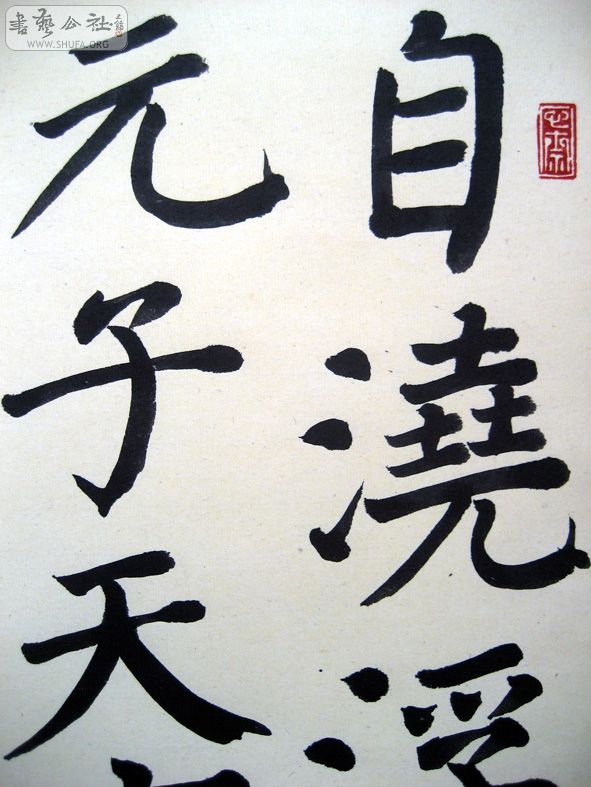 書藝公社
WWW.SHUFA.ORG
自澆
元子天